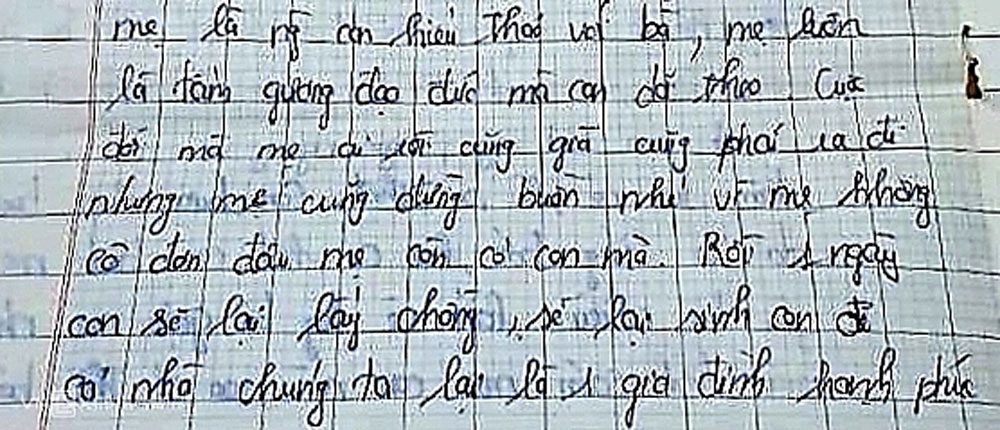 mẹ là ng con hiếu thảo với bà, mẹ luôn
là tấm gương đạo đức mà con dõi theo Cuộc
đời mà mẹ ai rồi cũng già cũng phải ra đi
nhưng mẹ cũng đừng buồn nhé vì mẹ không
cô đơn đâu mẹ còn có con mà. Rồi 1 ngày
con sẽ lại lấy chồng, sẽ lại sinh con đẻ
cả nhà chúng ta lại là 1 gia đình hạnh phúc